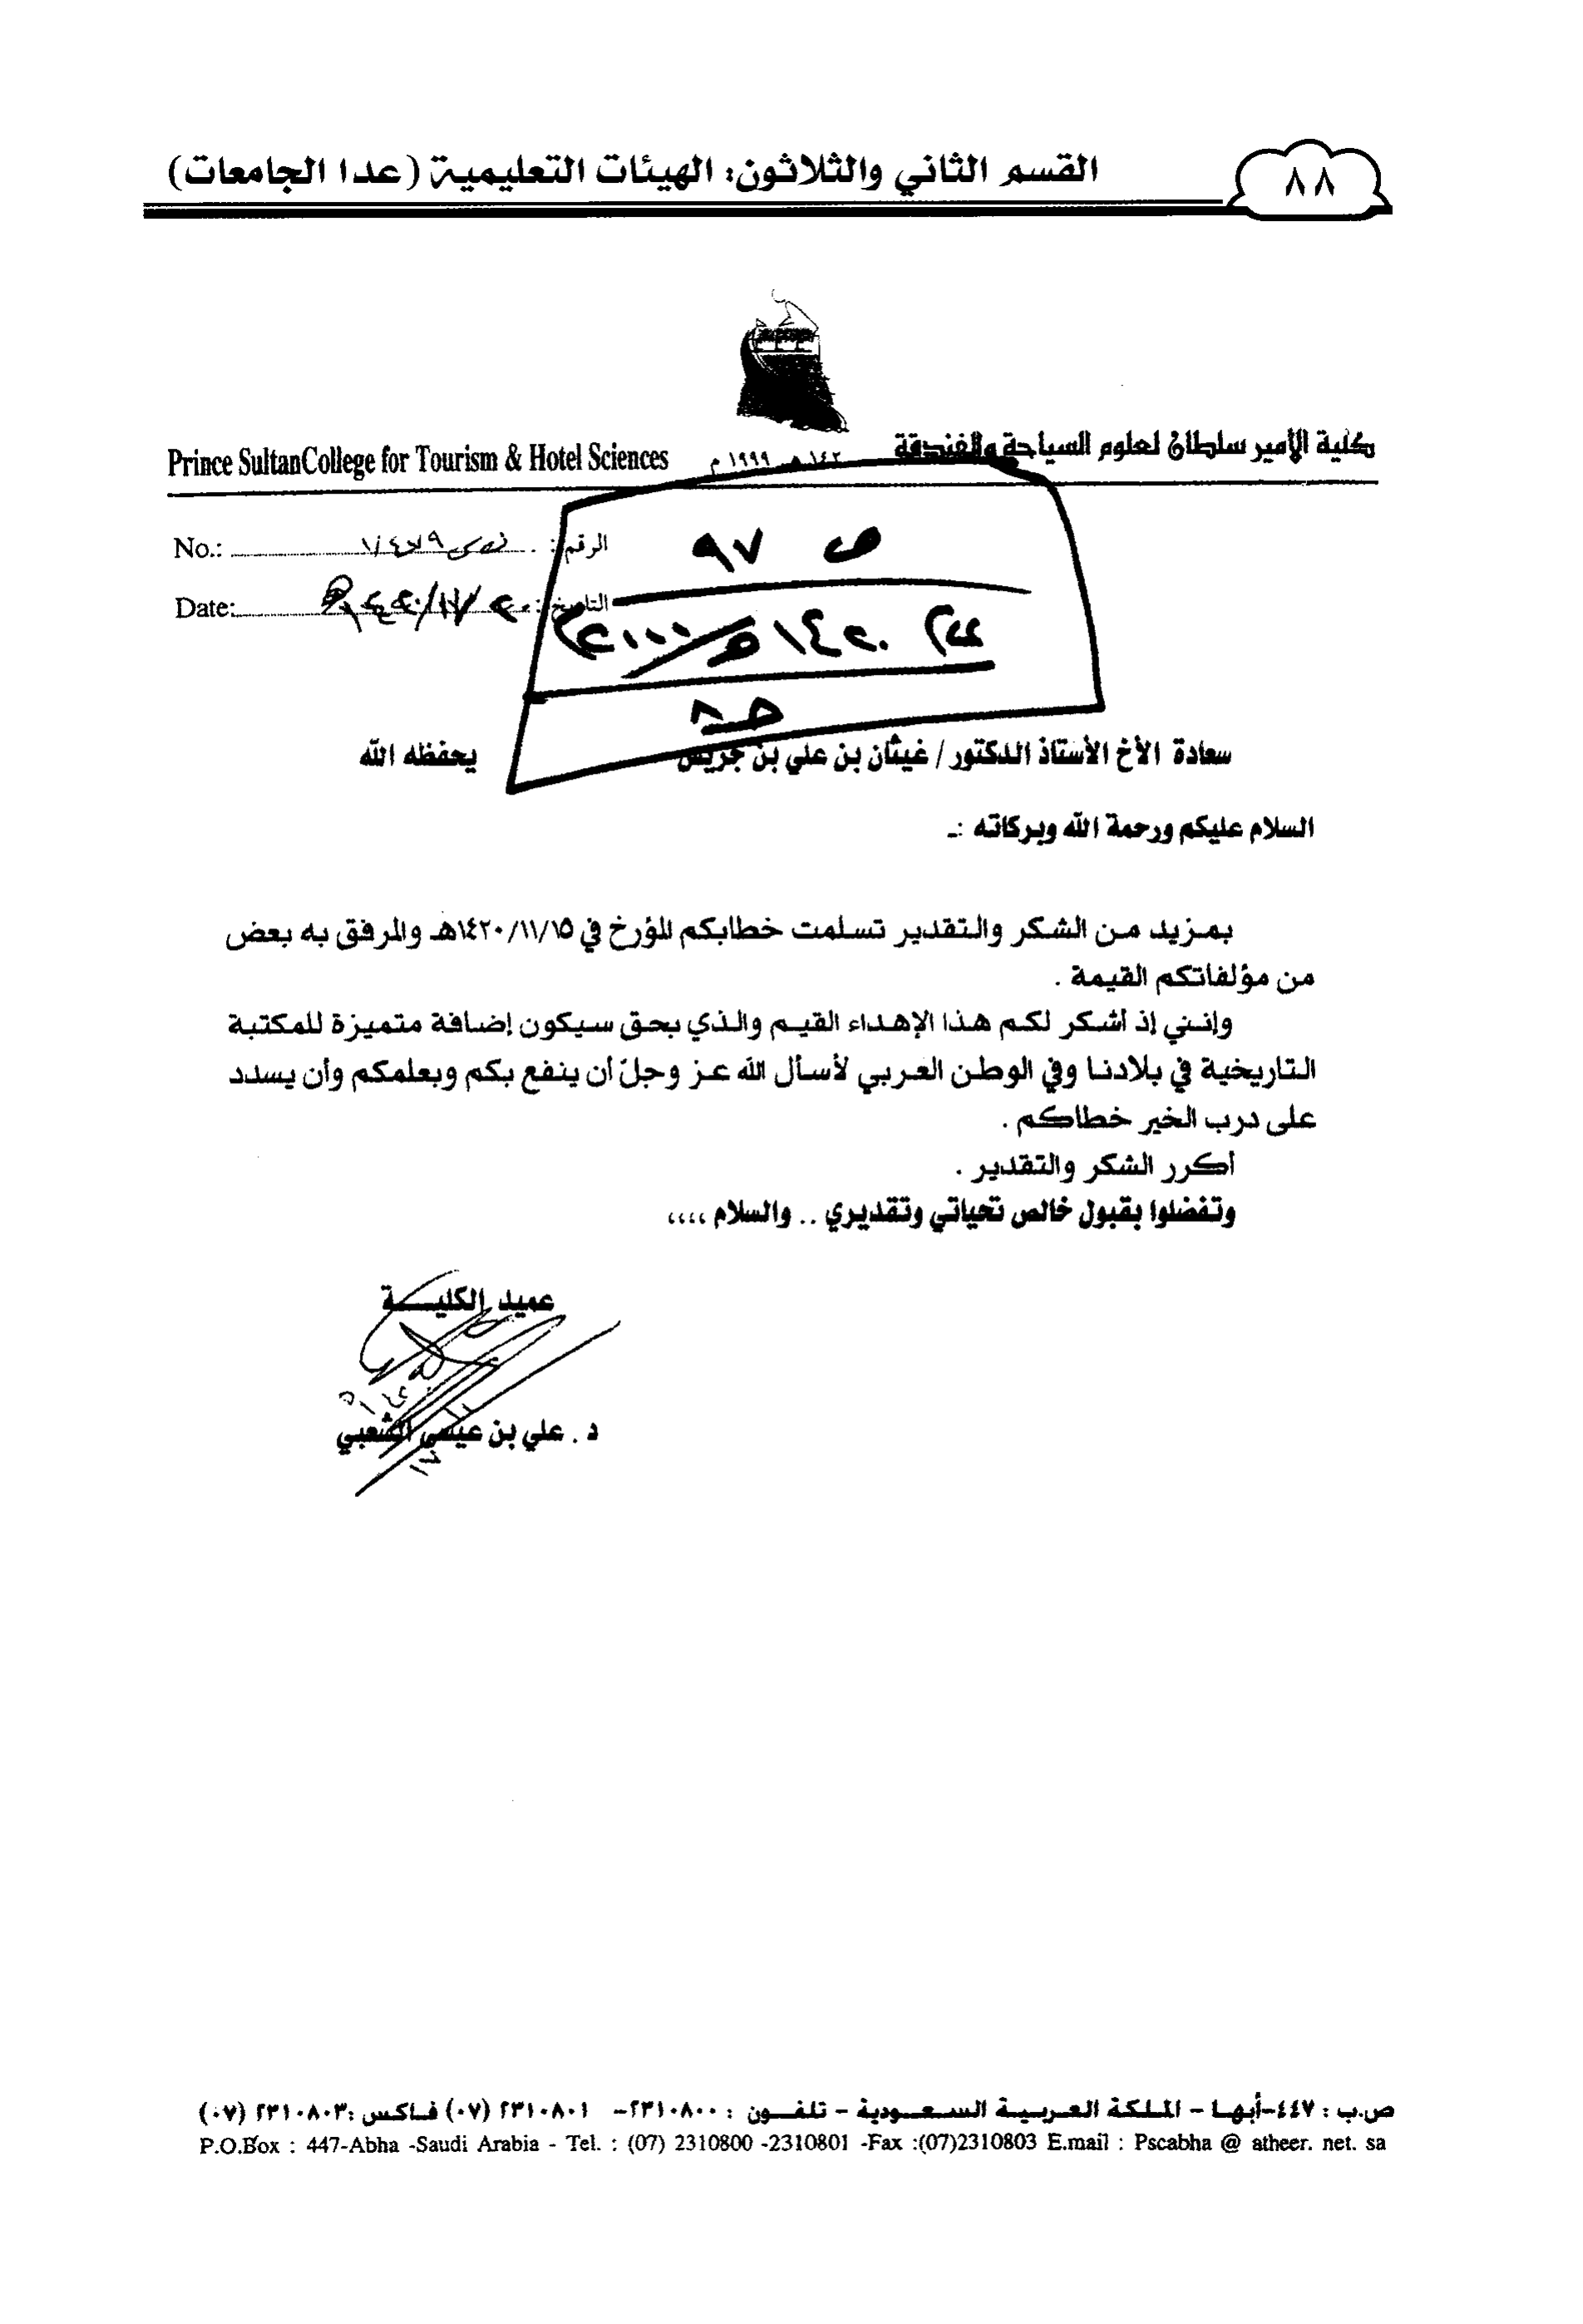 ٨٨
القسم الثاني والثلاثون: الهيئات التعليمية (عدا الجامعات)
كلية الأمير سلطان لعلوم السياحة والفندقة
١٩٩٩ م
Prince SultanCollege for Tourism & Hotel Sciences
ص ٩٧
الرقم :
No.:
التاريخ :
Date:
١٤٢٠هـ/٢٠٠٠م
سعادة الأخ الأستاذ الدكتور / غيثان بن علي بن جريس يحفظه الله
السلام عليكم ورحمة الله وبركاته :ـ
بمزيد من الشكر والتقدير تسلمت خطابكم المؤرخ في ١٤٢٠/١١/١٥هـ والمرفق به بعض
من مؤلفاتكم القيمة .
وإنني إذ أشكر لكم هذا الإهداء القيم والذي بحق سيكون إضافة متميزة للمكتبة
التاريخية في بلادنا وفي الوطن العربي لأسأل الله عز وجل أن ينفع بكم وبعلمكم وأن يسدد
على درب الخير خطاكم .
أكرر الشكر والتقدير .
وتفضلوا بقبول خالص تحياتي وتقديري .. والسلام ،،،،
عميد الكليـــة
د . علي بن عيسى الشعبي
ص.ب : ٤٤٧-أبها - المملكة العربية السعودية - تلفون : ٢٣١٠٨٠٠- ٢٣١٠٨٠١ (٠٧) فاكس :٢٣١٠٨٠٣ (٠٧)
P.O.Box : 447-Abha -Saudi Arabia - Tel. : (07) 2310800 -2310801 -Fax :(07)2310803 E.mail : Pscabha @ atheer. net. sa